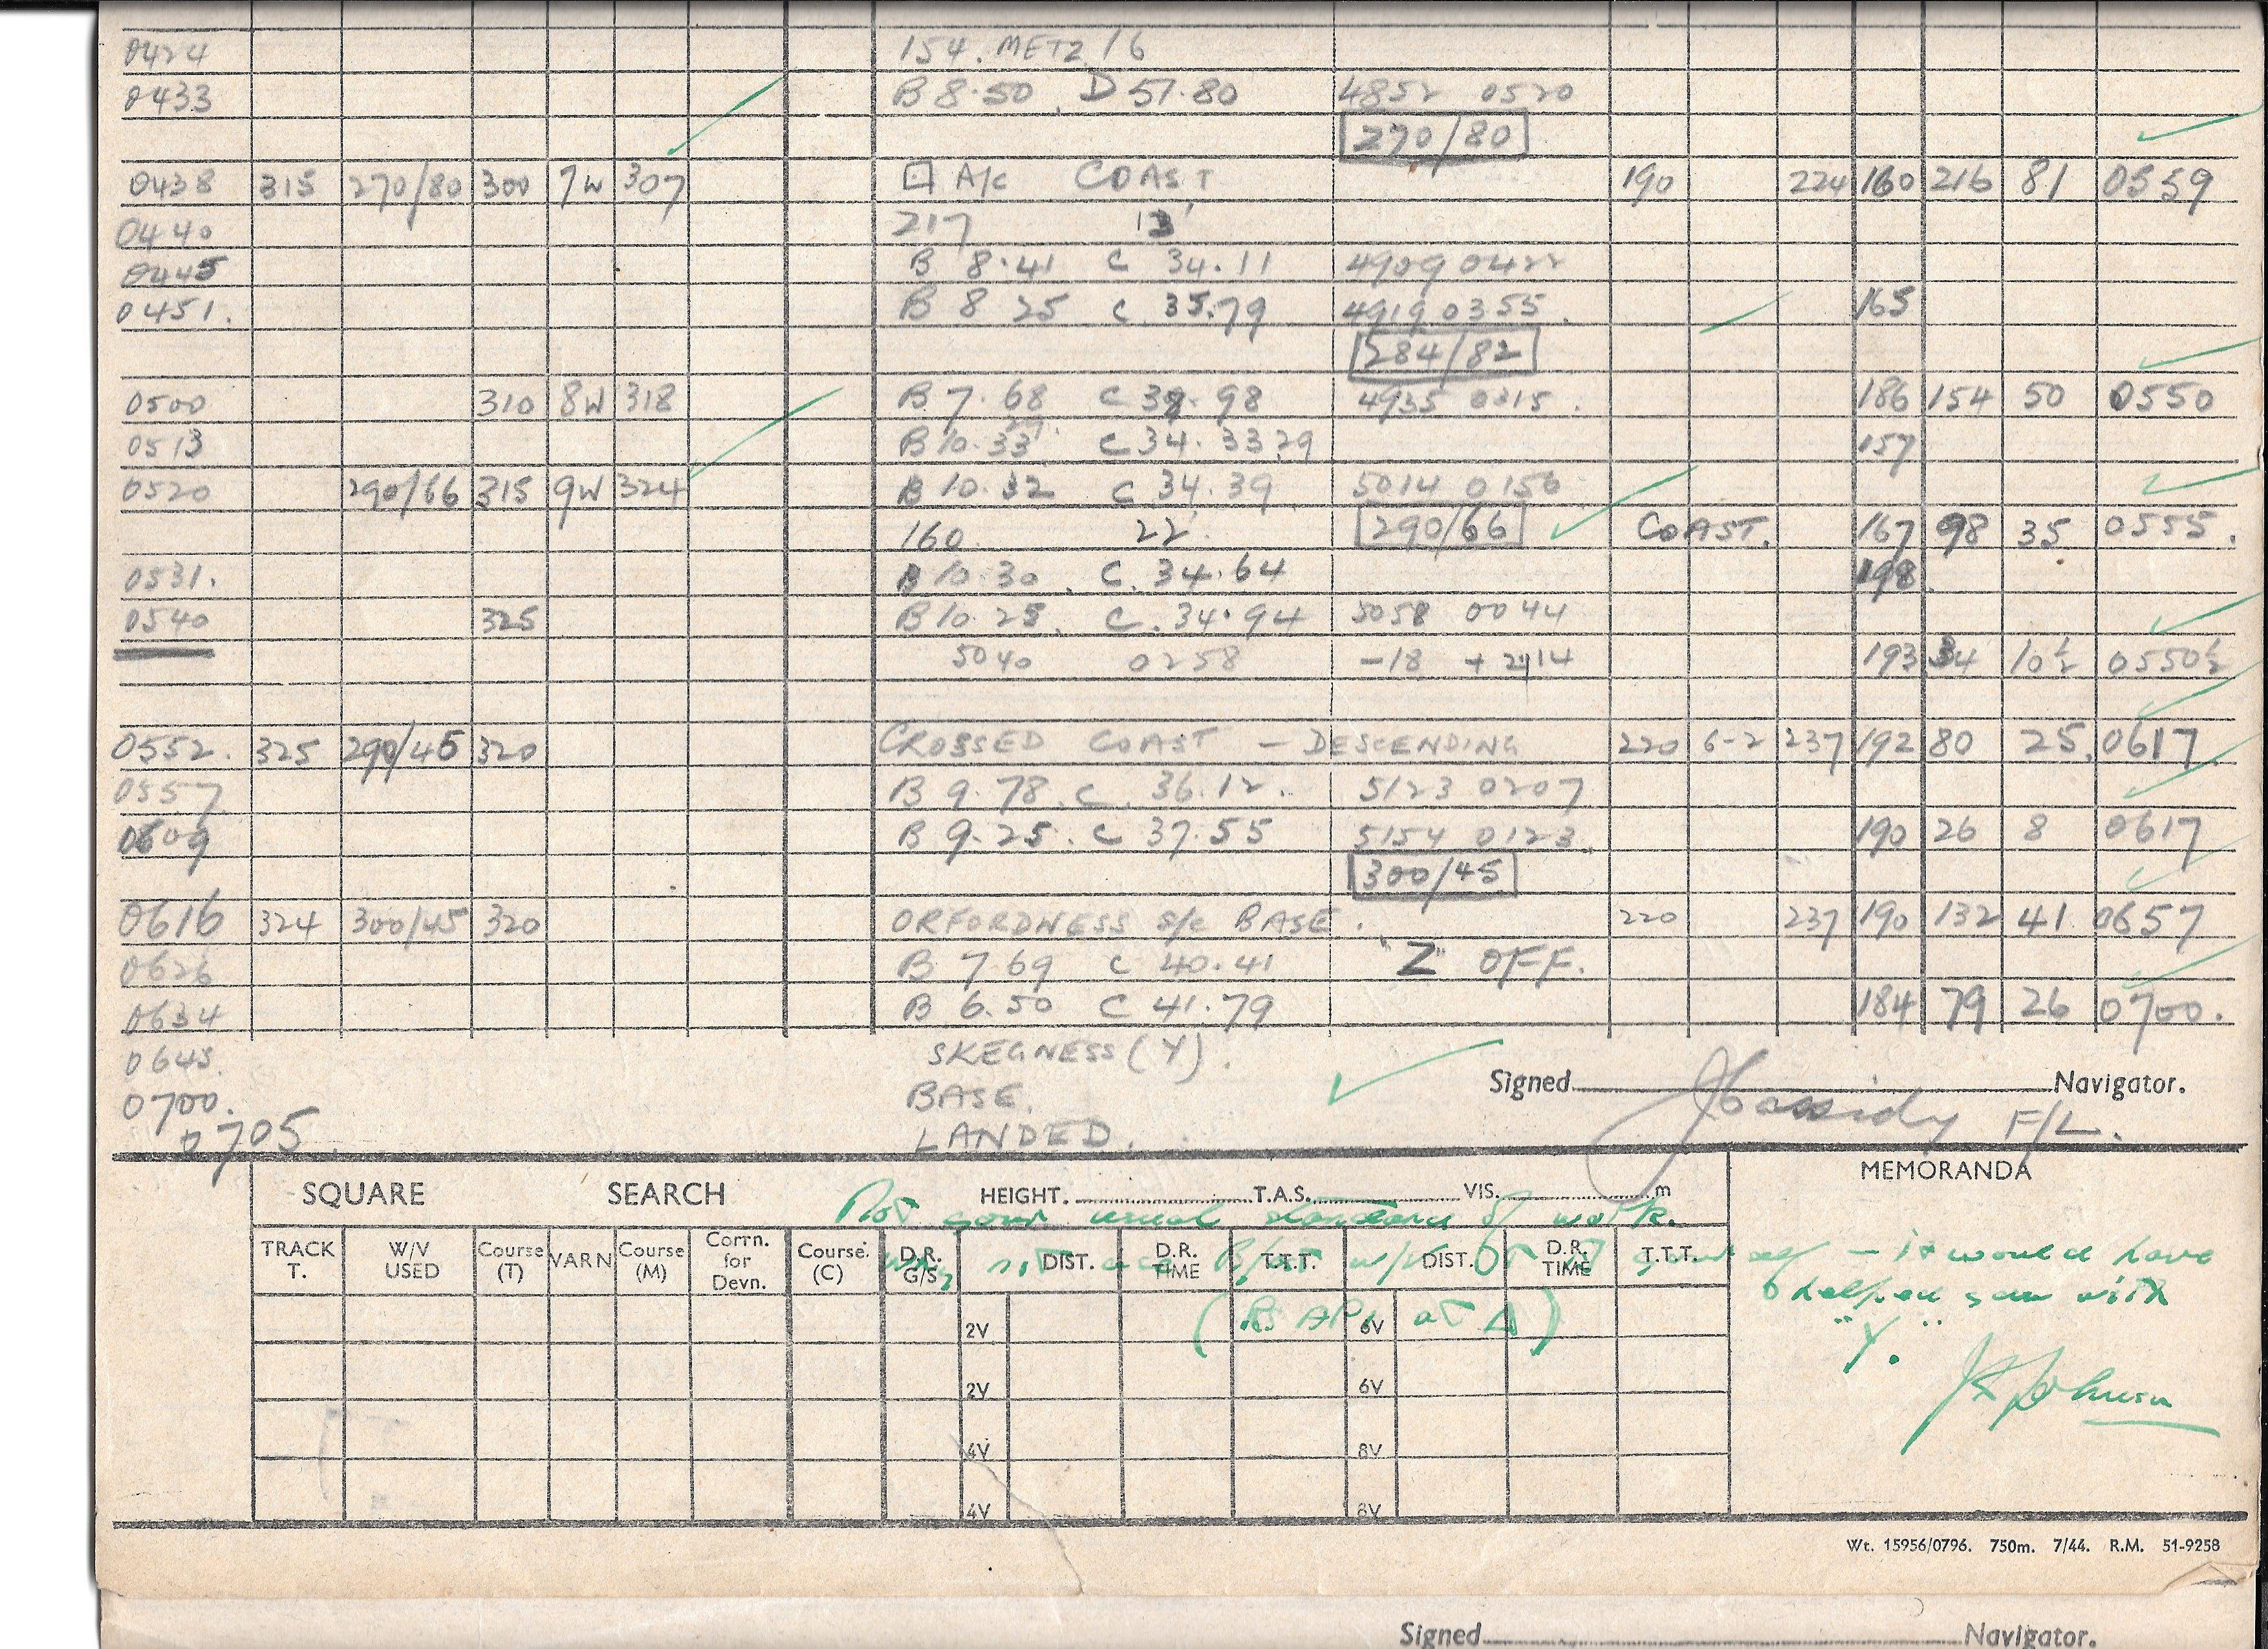 0424 154. METZ 16
0433 B 8·50. D 51·80 4852 0520
270/80
0438 315 270/80 300 7W 307 A/C COAST 190 224 160 216 81 0559
0440 217 13'
0445 B 8·41 C 34.11 4909 0422
0451. B 8 25 C 35.79 4919 0355. 165
284/82
0500 310 8W 318 B 7.68 C 39.98 4935 0315. 186 154 50 0550
0513 B 10.33 C 34.33 29 157
0520 290/66 315 9W 324 B 10.32 C 34.39 5014 0156
160. 22' 290/66 COAST. 167 98 35 0555.
0531. B 10.30. C. 34.64 198
0540 325 B 10.25. C. 34.94 5058 0044
5040 0258 -18 + 214 193 34 10½ 0550½
0552. 325 290/45 320 CROSSED COAST - DESCENDING 220 6-2 237 192 80 25. 0617.
0557 B 9.78. C. 36.12. 5123 0207
0609 B 9.25. C 37.55 5154 0123. 190 26 8 0617
300/45
0616 324 300/45 320 ORFORDNESS S/C BASE. 220 237 190 132 41 0657
0626 B 7.69 C 40.41 "Z" OFF.
0634 B 6.50 C 41.79 184 79 26 0700.
0645. SKEGNESS (Y).
Signed Navigator.
JCassidy F/L.
0700. BASE.
0705 LANDED.
SQUARE SEARCH HEIGHT. T.A.S. VIS. m MEMORANDA
Not your usual standard of work.
TRACK T. W/V USED Course (T) VARN Course (M) Corrn. for Devn. Course. (C) D.R. G/S DIST. D.R. TIME T.T.T. DIST. D.R. TIME T.T.T.
Why not W/V - it would have
helped you with
"Y".
( R API at Δ )
2V 6V
2V 6V
4V 8V
4V 8V
Johnson
Wt. 15956/0796. 750m. 7/44. R.M. 51-9258
Signed Navigator.